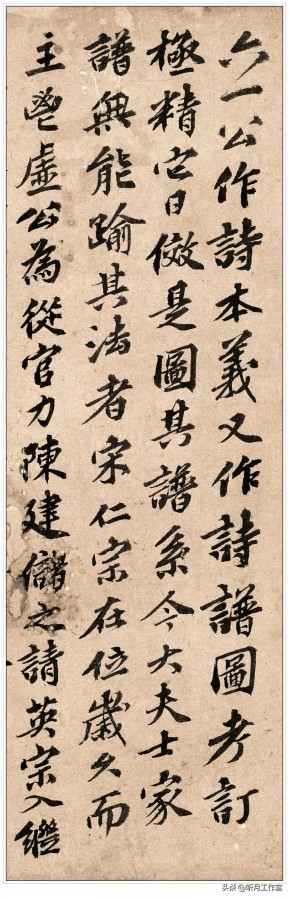 六一公作詩本義又作詩譜圖考訂
極精它日倣是圖其譜系今大夫士家
譜無能踰其法者宋仁宗在位歲久而
主鬯虛公為從官力陳建儲之請英宗入繼
头条 @听月工作室